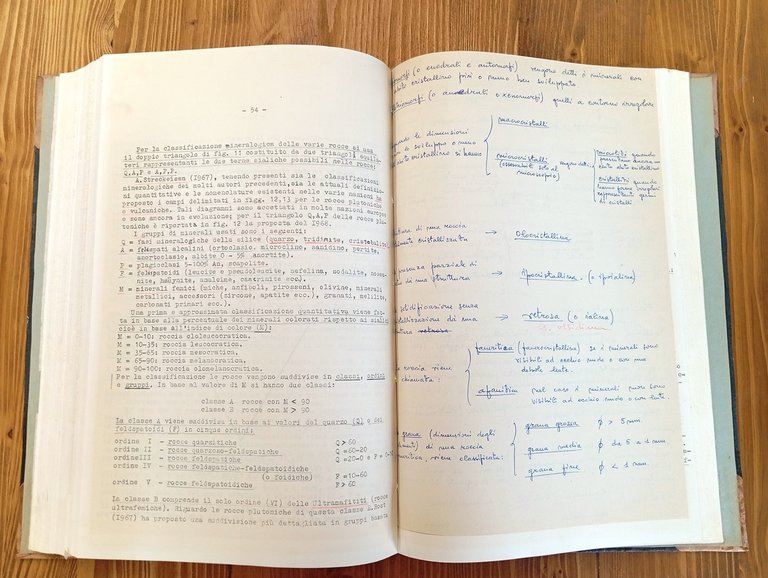 - 54 -
Per la classificazione mineralogica delle varie rocce si usa
il doppio triangolo di fig. 11 costituito da due triangoli equila-
teri rappresentanti le due terne sialiche possibili nelle rocce:
Q,A,P e A,P,F.
A.Streckeisen (1967), tenendo presenti sia le classificazioni
mineralogiche dei molti autori precedenti, sia le attuali definizio-
ni quantitative e la nomenclature esistenti nelle varie nazioni ha
proposto i campi delimitati in figg. 12,13 per le rocce plutoniche
e vulcaniche. Tali diagrammi sono accettati in molte nazioni europee
e sono ancora in evoluzione; per il triangolo Q,A,P delle rocce plu-
toniche è riportata in fig. 12 la proposta del 1968.
I gruppi di minerali usati sono i seguenti:
Q = fasi mineralogiche della silice (quarzo, tridimite, cristobalite)
A = felspati alcalini (ortoclasio, microclino, sanidino, pertite,
anortoclasio, albite 0 - 5% anortite).
P = plagioclasi 5-100% An, scapolite.
F = felspatoidi (leucite e pseudoleucite, nefelina, sodalite, nosea-
nite, haüynite, analcime, cancrinite ecc.).
M = minerali femici (miche, anfiboli, pirosseni, olivine, minerali
metallici, accessori (zircone, apatite ecc.), granati, melilite,
carbonati primari ecc.).
Una prima e approssimata classificazione quantitativa viene fat-
ta in base alla percentuale dei minerali colorati rispetto ai sialici
cioè in base all'indice di colore (M):
M = 0-10: roccia ololeucocratica.
M = 10-35: roccia leucocratica.
M = 35-65: roccia mesocratica.
M = 65-90: roccia melanocratica.
M = 90-100: roccia olomelanocratica.
Per la classificazione le rocce vengono suddivise in classi, ordini
e gruppi. In base al valore di M si hanno due classi:
classe A rocce con M < 90
classe B rocce con M > 90
La classe A viene suddivisa in base ai valori del quarzo (Q) o dei
feldspatoidi (F) in cinque ordini:
ordine I - rocce quarzitiche Q > 60
ordine II - rocce quarzoso-feldspatiche Q =60-20
ordine III - rocce feldspatiche Q =20-0 e F = 0-10
ordine IV - rocce feldspatiche-feldspatoidiche
(o foidiche) F =10-60
ordine V - rocce feldspatoidiche F > 60
La classe B comprende il solo ordine (VI) delle Ultramafititi (rocce
ultrafemiche). Riguardo le rocce plutoniche di questa classe
(1967) ha proposto una suddivisione più dettagliata in gruppi basata
(o euedrali e automorfi) vengono detti i minerali con
abito cristallino più o meno ben sviluppato
(o anedrali o xenomorfi) quelli a contorno irregolare
le dimensioni
sviluppo o meno
cristallino si hanno
macrocristalli
microcristalli
(osservabili solo al
microscopio)
microliti quando
presentano ancora un
certo abito cristallino
cristalliti quando
hanno forme irregolari
rappresentanti germi
di cristalli
di una roccia
cristallizzata → Olocristallina
presenza parziale di
una struttura → ipocristallina (o ipoialina)
solidificazione senza
cristallizzazione di una
vetrosa → vetrosa (o ialina)
es. ossidiana
roccia viene
chiamata:
faneritica (fanerocristallina) se i minerali sono
visibili ad occhio nudo o con una
debole lente.
afanitica nel caso i minerali non sono
visibili ad occhio nudo o con lente
grana (dimensioni degli
) di una roccia
viene classificata:
grana grossa ϕ > 5 mm
grana media ϕ da 5 a 1 mm
grana fine ϕ < 1 mm